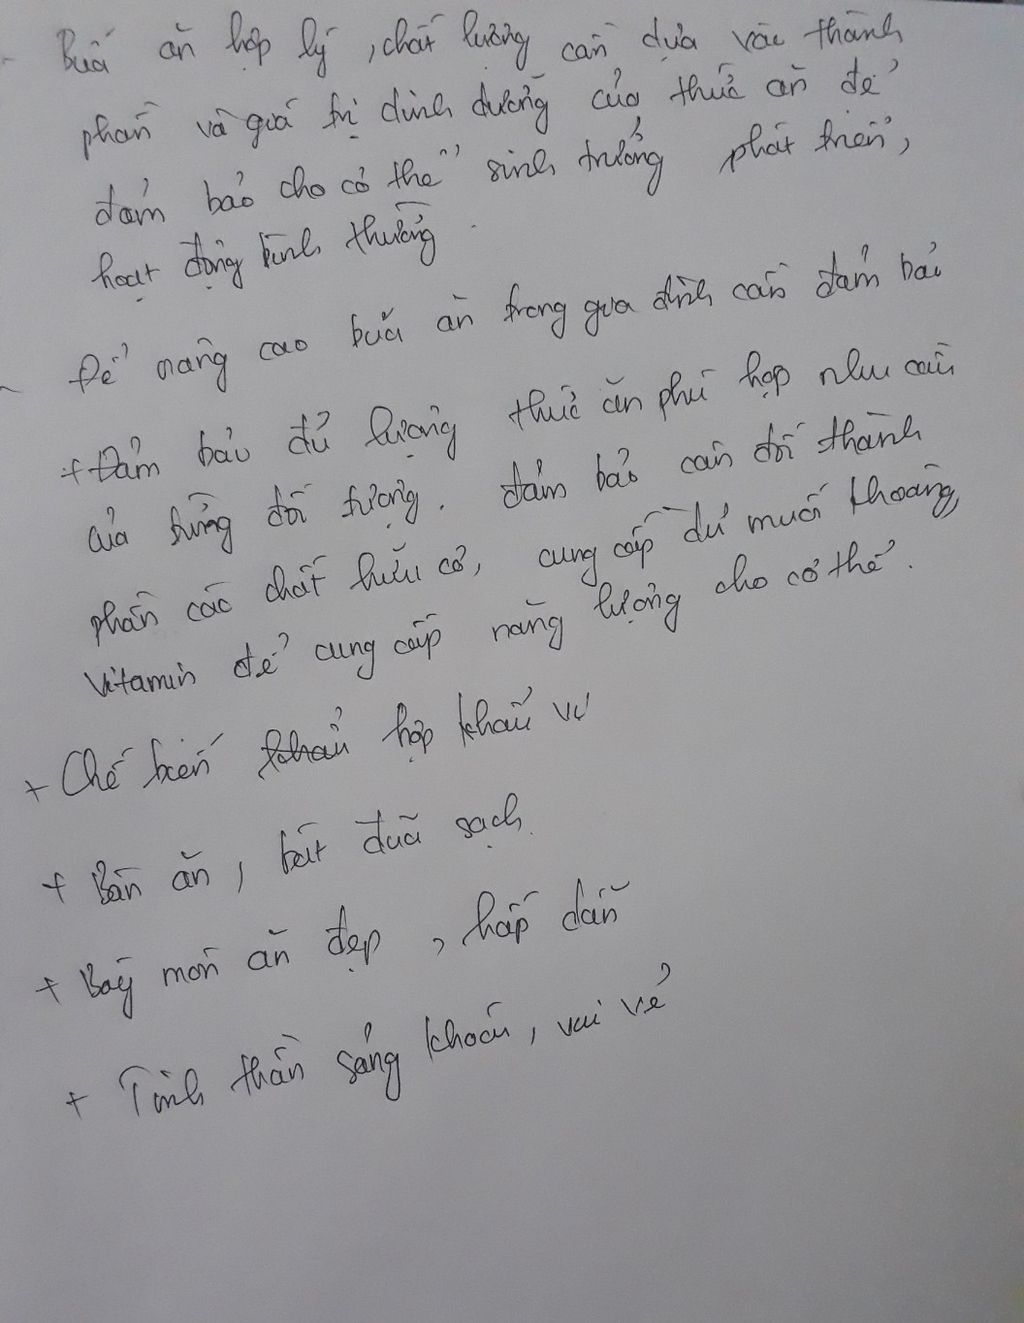 - Bữa ăn hợp lý, chất lượng cần dựa vào thành
phần và giá trị dinh dưỡng của thức ăn để
đảm bảo cho cơ thể sinh trưởng phát triển,
hoạt động bình thường.
- Để nâng cao bữa ăn trong gia đình cần đảm bảo
+ Đảm bảo đủ lượng thức ăn phù hợp nhu cầu
của từng đối tượng. đảm bảo cân đối thành
phần các chất hữu cơ, cung cấp đủ muối khoáng,
vitamin để cung cấp năng lượng cho cơ thể.
+ Chế biến hợp khẩu vị
+ Bàn ăn, bát đũa sạch.
+ Bày món ăn đẹp, hấp dẫn
+ Tinh thần sảng khoái, vui vẻ